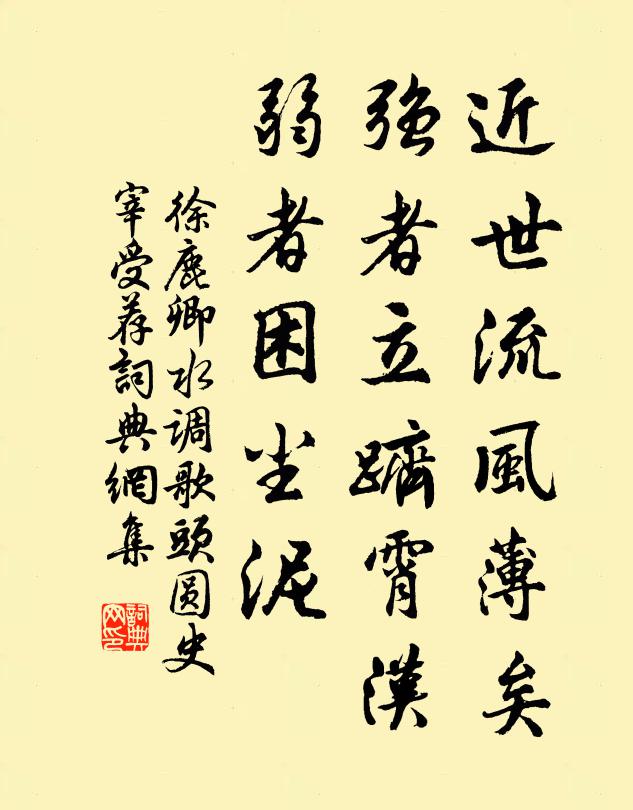 近世流風薄矣
強者立躋霄漢
弱者困尘泥
徐鹿卿水调歌頭圆史
宰受荐詞典網集
詞典網印